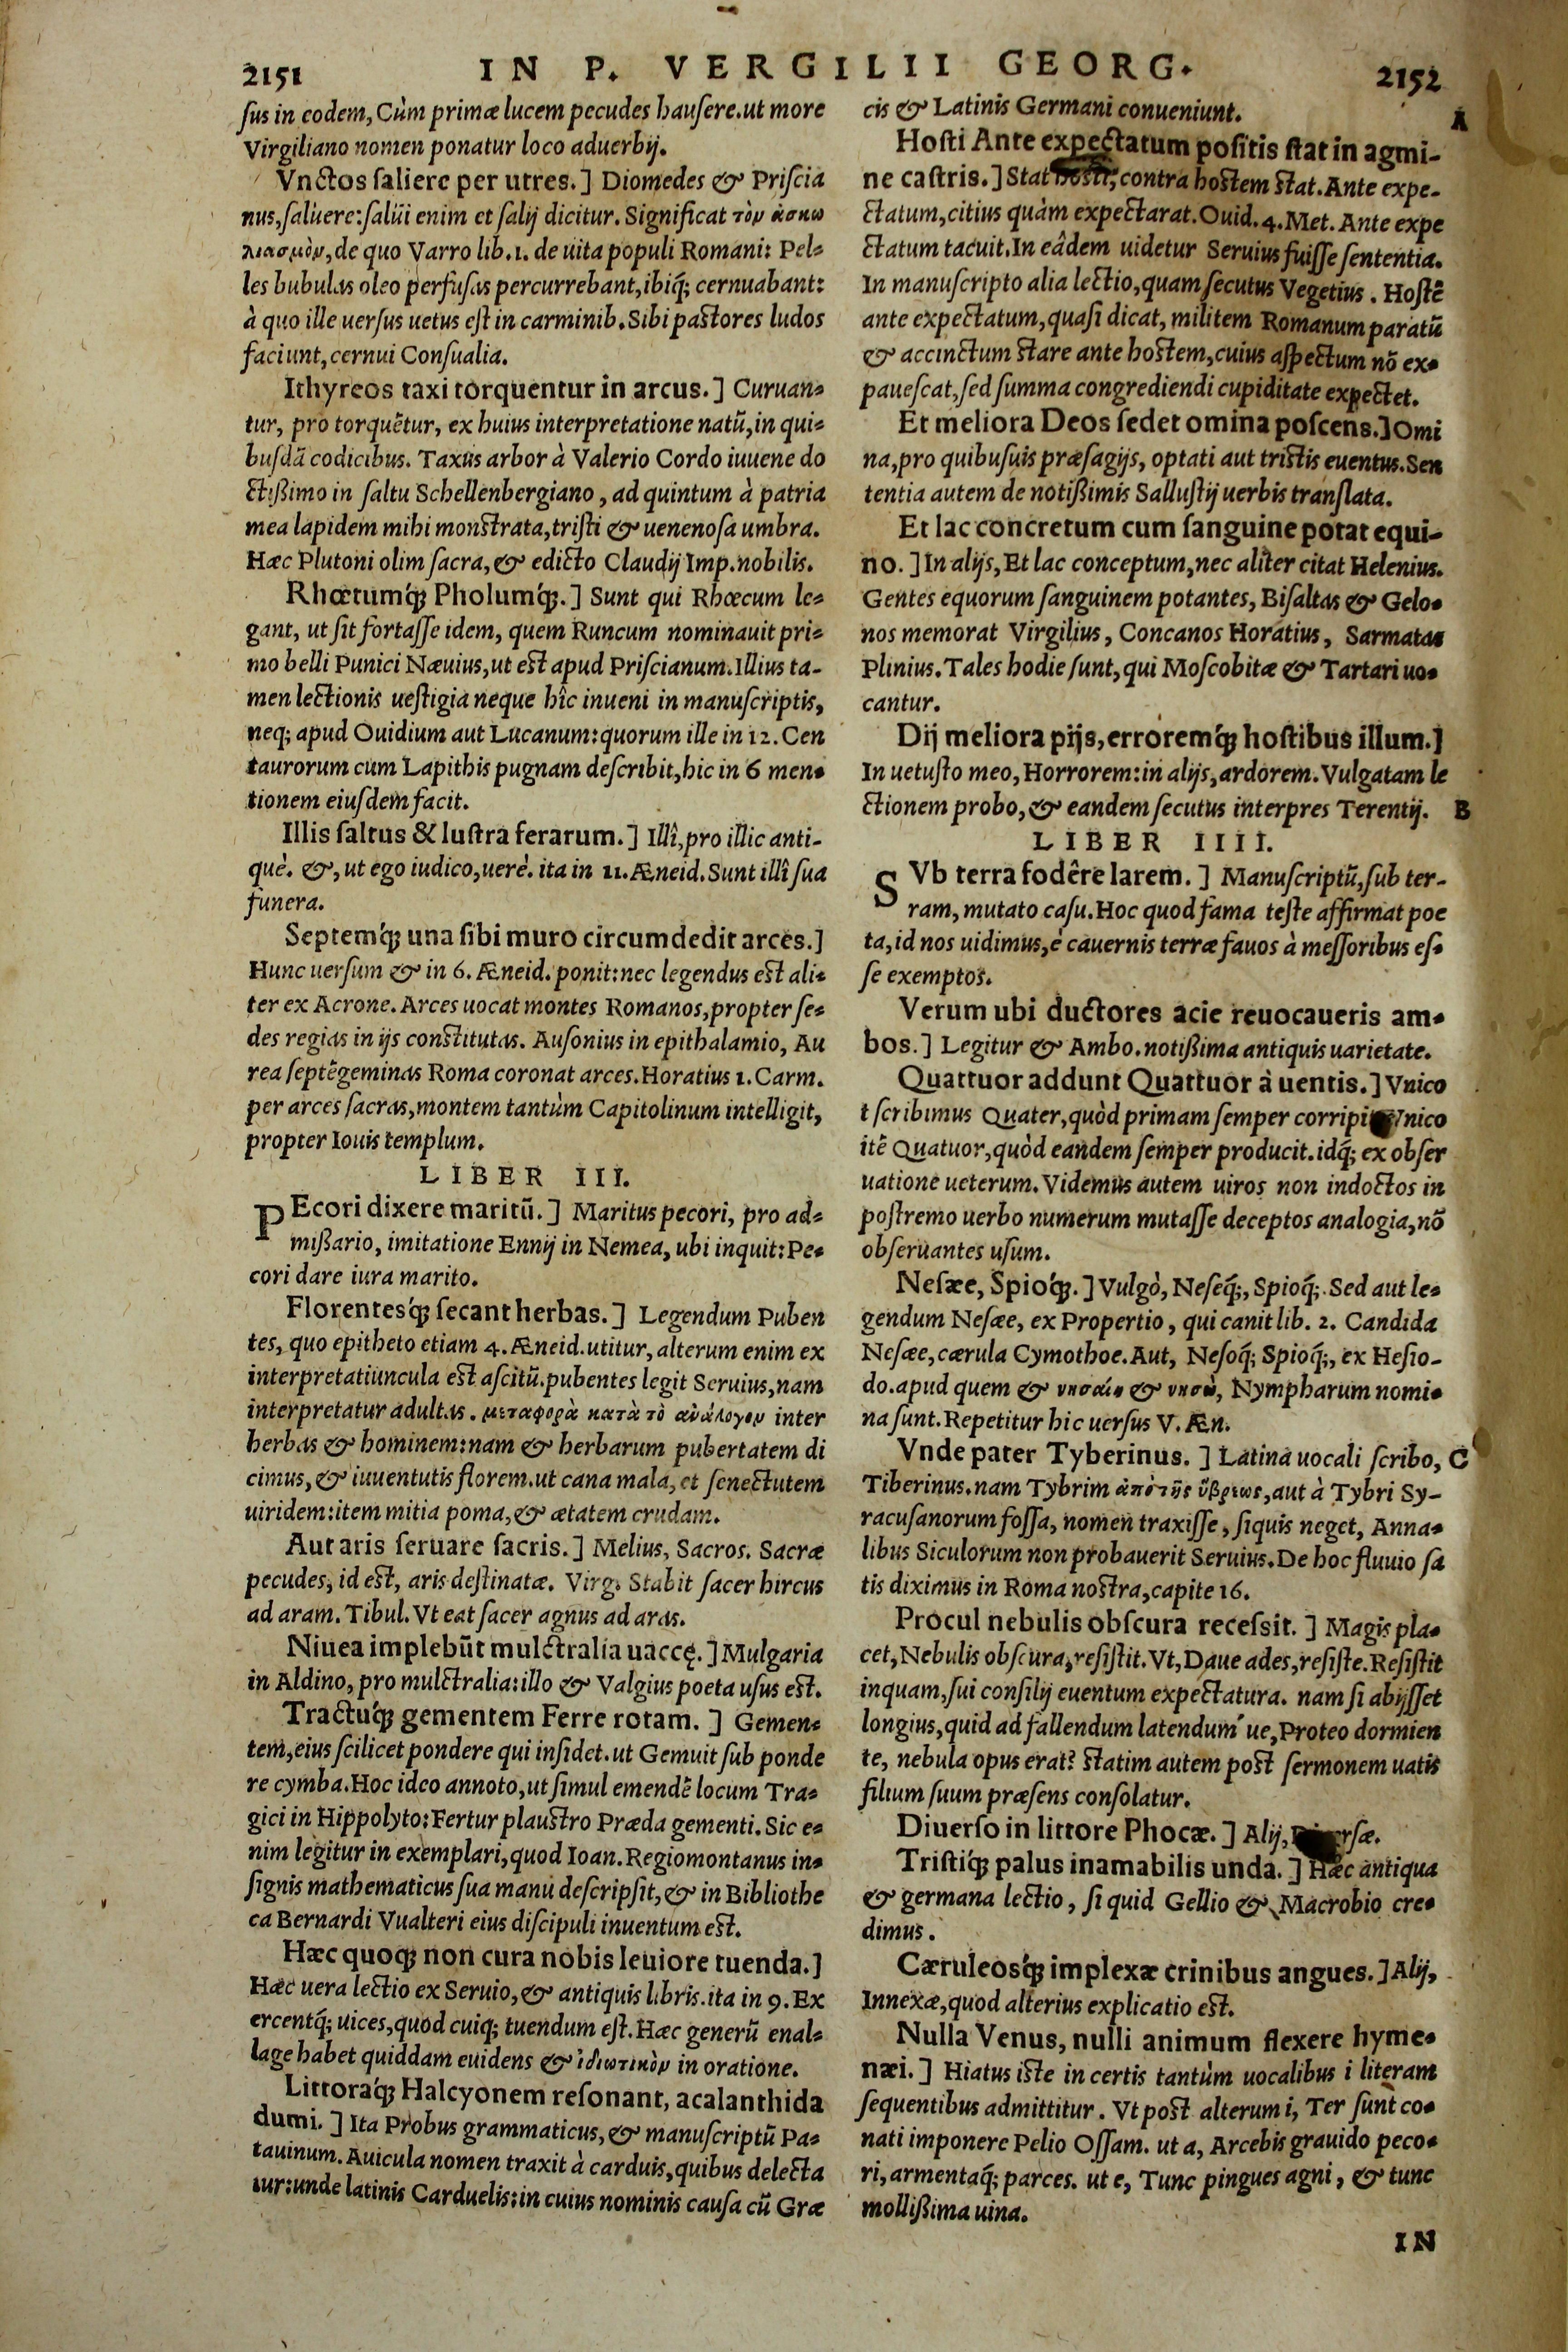 2151 IN P. VERGILII GEORG. 2152
ſus in eodem, Cùm primæ lucem pecudes hauſere.ut more
Virgiliano nomen ponatur loco aduerbij.
Vnctos ſaliere per utres.] Diomedes & Priſcia
nus,ſaluere:ſalui enim et ſalij dicitur. Significat τὸν ἀσκω
λιασμὸν,de quo Varro lib.1. de uita populi Romani: Pel-
les bubulas oleo perfuſas percurrebant,ibiq́; cernuabant:
à quo ille uerſus uetus eſt in carminib. Sibi paſtores ludos
faciunt,cernui Conſualia.
Ithyreos taxi torquentur in arcus.] Curuan-
tur, pro torquẽtur, ex huius interpretatione natũ,in qui-
buſdã codicibus. Taxus arbor à Valerio Cordo iuuene do
ctißimo in ſaltu Schellenbergiano, ad quintum à patria
mea lapidem mihi monſtrata,triſti & uenenoſa umbra.
Hæc Plutoni olim ſacra,& edicto Claudij Imp.nobilis.
Rhœtumq́; Pholumq́;.] Sunt qui Rhœcum le-
gant, ut ſit fortaſſe idem, quem Runcum nominauit pri-
mo belli Punici Næuius,ut eſt apud Priſcianum.Illius ta-
men lectionis ueſtigia neque hîc inueni in manuſcriptis,
neq; apud Ouidium aut Lucanum:quorum ille in 12.Cen
taurorum cum Lapithis pugnam deſcribit,hic in 6 men-
tionem eiuſdem facit.
Illis ſaltus & luſtra ferarum.] Illî,pro illic anti-
què. &, ut ego iudico,uerè. ita in 11.Æneid.Sunt illî ſua
funera.
Septemq́; una ſibi muro circumdedit arces.]
Hunc uerſum & in 6. Æneid. ponit:nec legendus eſt ali-
ter ex Acrone. Arces uocat montes Romanos,propter ſe-
des regias in ijs conſtitutas. Auſonius in epithalamio, Au
rea ſeptẽgeminas Roma coronat arces.Horatius 1.Carm.
per arces ſacras,montem tantùm Capitolinum intelligit,
propter Iouis templum.
LIBER III.
PEcori dixere maritũ.] Maritus pecori, pro ad-
mißario, imitatione Ennij in Nemea, ubi inquit:Pe-
cori dare iura marito.
Florentesq́; ſecant herbas.] Legendum Puben
tes, quo epitheto etiam 4. Æneid.utitur, alterum enim ex
interpretatiuncula eſt aſcitũ.pubentes legit Seruius,nam
interpretatur adultas. μεταφορὰ κατὰ τὸ ἀνάλογον inter
herbas & hominem:nam & herbarum pubertatem di
cimus,& iuuentutis florem.ut cana mala, et ſenectutem
uiridem:item mitia poma,& ætatem crudam.
Aut aris ſeruare ſacris.] Melius, Sacros. Sacræ
pecudes, id eſt, aris deſtinatæ. Virg. Stabit ſacer hircus
ad aram. Tibul.Vt eat ſacer agnus ad aras.
Niuea implebũt mulctralia uaccę.] Mulgaria
in Aldino, pro mulctralia:illo & Valgius poeta uſus eſt.
Tractuq́; gementem Ferre rotam.] Gemen-
tem,eius ſcilicet pondere qui inſidet.ut Gemuit ſub ponde
re cymba.Hoc ideo annoto,ut ſimul emendẽ locum Tra-
gici in Hippolyto:Fertur plauſtro Præda gementi. Sic e-
nim legitur in exemplari,quod Ioan.Regiomontanus in-
ſignis mathematicus ſua manu deſcripſit,& in Bibliothe
ca Bernardi Vualteri eius diſcipuli inuentum eſt.
Hæc quoq; non cura nobis leuiore tuenda.]
Hæc uera lectio ex Seruio,& antiquis libris.ita in 9. Ex
ercentq́; uices,quod cuiq; tuendum eſt. Hæc generũ enal-
lage habet quiddam euidens & ἰδιωτικὸν in oratione.
Littoraq́; Halcyonem reſonant, acalanthida
dumi.] Ita Probus grammaticus,& manuſcriptũ Pa-
tauinum. Auicula nomen traxit à carduis,quibus delecta
tur:unde latinis Carduelis:in cuius nominis cauſa cũ Græ
cis & Latinis Germani conueniunt.
A
Hoſti Ante expectatum poſitis ſtat in agmi-
ne caſtris.] Stat hoſti, contra hoſtem ſtat. Ante expe-
ctatum,citius quàm expectarat.Ouid.4.Met. Ante expe
ctatum tacuit.In eâdem uidetur Seruius fuiſſe ſententia.
In manuſcripto alia lectio,quam ſecutus Vegetius. Hoſtẽ
ante expectatum,quaſi dicat, militem Romanum paratũ
& accinctum ſtare ante hoſtem,cuius aſpectum nõ ex-
paueſcat,ſed ſumma congrediendi cupiditate expectet.
Et meliora Deos ſedet omina poſcens.] Omi
na,pro quibuſuis præſagijs, optati aut triſtis euentus.Sen
tentia autem de notißimis Salluſtij uerbis tranſlata.
Et lac concretum cum ſanguine potat equi-
no.] In alijs,Et lac conceptum,nec aliter citat Helenius.
Gentes equorum ſanguinem potantes, Biſaltas & Gelo-
nos memorat Virgilius, Concanos Horatius, Sarmatas
Plinius. Tales hodie ſunt,qui Moſcobitæ & Tartari uo-
cantur.
Dij meliora pijs,erroremq́; hoſtibus illum.]
In uetuſto meo, Horrorem:in alijs,ardorem.Vulgatam le
ctionem probo,& eandem ſecutus interpres Terentij. B
LIBER IIII.
SVb terra fodêre larem.] Manuſcriptũ,ſub ter-
ram, mutato caſu.Hoc quod fama teſte affirmat poe
ta,id nos uidimus,è cauernis terræ fauos à meſſoribus eſ-
ſe exemptos.
Verum ubi ductores acie reuocaueris am-
bos.] Legitur & Ambo.notißima antiquis uarietate.
Quattuor addunt Quattuor à uentis.] Vnico
t ſcribimus Quater,quòd primam ſemper corripi Vnico
itẽ Quatuor,quòd eandem ſemper producit.idq́; ex obſer
uatione ueterum.Videmus autem uiros non indoctos in
poſtremo uerbo numerum mutaſſe deceptos analogia,nõ
obſeruantes uſum.
Neſæe, Spioq́;.] Vulgò, Neſeq́;, Spioq́;. Sed aut le-
gendum Neſæe, ex Propertio, qui canit lib. 2. Candida
Neſæe,cærula Cymothoe.Aut, Neſoq́; Spioq́;, ex Heſio-
do.apud quem & νησαίη & νησὼ, Nympharum nomi-
na ſunt.Repetitur hic uerſus V. Æn.
Vnde pater Tyberinus.] Latina uocali ſcribo, C
Tiberinus.nam Tybrim ἀπὸ τῆς ὕβρεως,aut à Tybri Sy-
racuſanorum foſſa, nomen traxiſſe, ſiquis neget, Anna-
libus Siculorum non probauerit Seruius. De hoc fluuio ſa
tis diximus in Roma noſtra,capite 16.
Procul nebulis obſcura receſsit.] Magis pla-
cet,Nebulis obſcura,reſiſtit.Vt,Daue ades,reſiſte.Reſiſtit
inquam,ſui conſilij euentum expectatura. nam ſi abijſſet
longius,quid ad fallendum latendum ́ue,Proteo dormien
te, nebula opus erat? ſtatim autem poſt ſermonem uatis
filium ſuum præſens conſolatur.
Diuerſo in littore Phocæ.] Alij,
Triſtiq́; palus inamabilis unda.] Hæc antiqua
& germana lectio, ſi quid Gellio & Macrobio cre-
dimus.
Cæruleosq́; implexæ crinibus angues.] Alij,
Innexæ,quod alterius explicatio eſt.
Nulla Venus, nulli animum flexere hyme-
næi.] Hiatus iſte in certis tantùm uocalibus i literam
ſequentibus admittitur. Vt poſt alterum i, Ter ſunt co-
nati imponere Pelio Oſſam. ut a, Arcebis grauido peco-
ri,armentaq́; parces. ut e, Tunc pingues agni, & tunc
mollißima uina.
IN